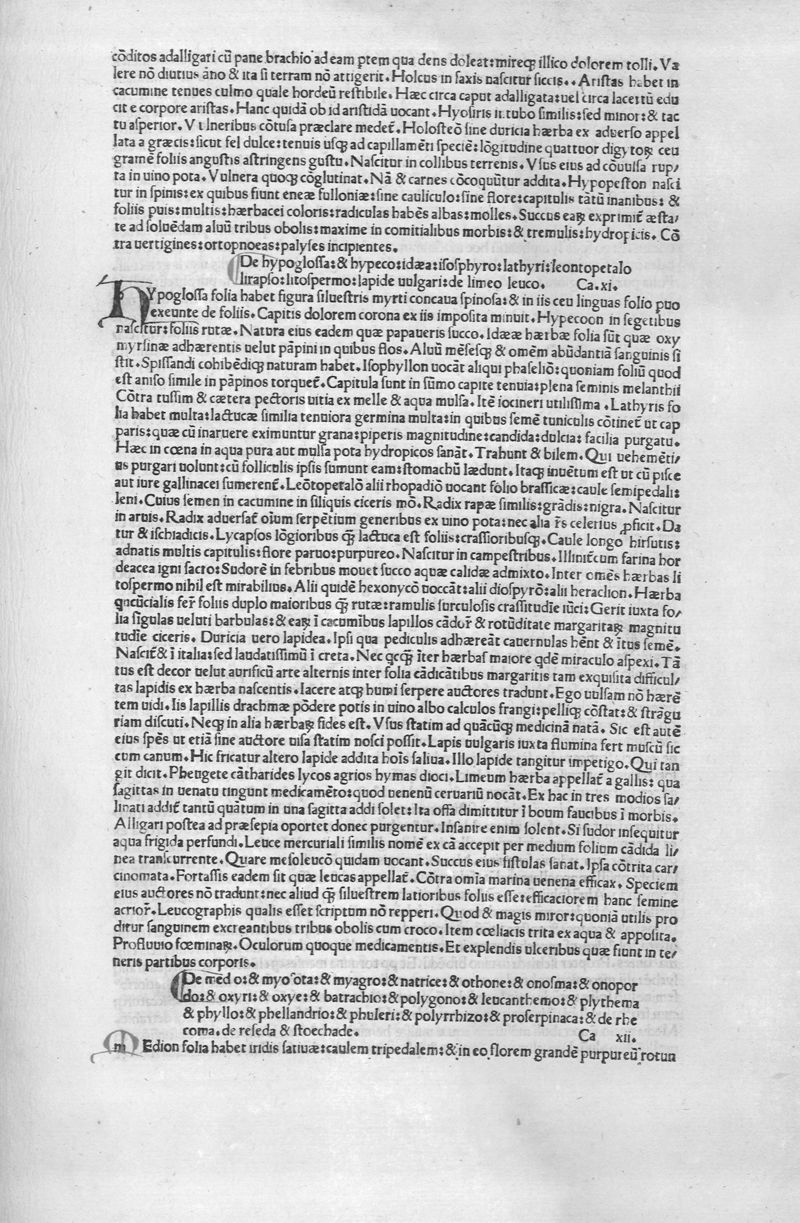 cōditos adalligari cū pane brachio ad eam ptem qua dens doleat:mireqꝫ illico dolorem tolli. Va
lere nō diutius āno & ita si terram nō attigerit. Holcus in saxis nascitur siccis. . Aristas habet in
cacumine tenues culmo quale hordeū restibile. Hæc circa caput adalligata:uel circa lacertū edu
cit e corpore aristas. Hanc quidā ob id aristidā uocant. Hyosiris ītubo similis:sed minor:& tac
tu asperior. Vulneribus cōtusa præclare medet̄. Holosteō sine duricia hærba ex aduerso appel
lata a græcis:sicut fel dulce:tenuis usqꝫ ad capillamēti speciē:lōgitudine quattuor digytoꝝ ceu
gramē foliis angustis astringens gustu. Nascitur in collibus terrenis. Vsus eius ad cōuulsa rup/
ta in uino pota. Vulnera quoqꝫ cōglutinat. Nā & carnes cōcoquūtur addita. Hypopeston nasci
tur in spinis:ex quibus fiunt eneæ fulloniæ:sine cauliculo:sine flore:capitulis tātū inanibus:&
foliis puis:multis:hærbacei coloris:radiculas habēs albas:molles. Succus eaꝝ exprimit̄ æsta/
te ad soluēdam aluū tribus obolis:maxime in comitialibus morbis:& tremulis:hydropicis. Cō
tra uertigines:ortopnoeas:palyses incipientes.
De hypoglossa:& hypeco:idæa:isosphyro:lathyri:leontopetalo
lirapso:litospermo:lapide uulgari:de limeo leuco. Ca.xi.
HYpoglossa folia habet figura siluestris myrti concaua spinosa:& in iis ceu linguas folio puo
exeunte de foliis. Capitis dolorem corona ex iis imposita minuit. Hypecoon in segetibus
nascitur:foliis rutæ. Natura eius eadem quæ papaueris succo. Idææ hærbæ folia sūt quæ oxy
myrsinæ adhærentis uelut pāpini in quibus flos. Aluū mēsesqꝫ & omēm abūdantiā sanguinis si
stit. Spissandi cohibēdiqꝫ naturam habet. Isophyllon uocāt aliqui phaseliō:quoniam foliū quod
est aniso simile in pāpinos torquet̄. Capitula sunt in sūmo capite tenuia:plena seminis melanthii
Cōtra tussim & cætera pectoris uitia ex melle & aqua mulsa. Itē iocineri utilissima . Lathyris fo
lia habet multa:lactucæ similia tenuiora germina multa:in quibus semē tuniculis cōtinet̄ ut cap
paris:quæ cū inaruere eximuntur grana:piperis magnitudine:candida:dulcia: facilia purgatu.
Hæc in cœna in aqua pura aut mulsa pota hydropicos sanāt. Trahunt & bilem. Qui uehemēti/
us purgari uolunt:cū folliculis ipsis sumunt eam:stomachū lædunt. Itaqꝫ inuētum est ut cū pisce
aut iure gallinacei sumerent̄. Leōtopetalō alii rhopadiō uocant folio brassicæ:caule semipedali:
leni. Cuius semen in cacumine in siliquis ciceris mō. Radix rapæ similis:grādis:nigra. Nascitur
in aruis. Radix aduersat̄ oium serpētium generibus ex uino pota:nec alia r̄s celerius ꝓficit. Da
tur & ischiadicis. Lycapsos lōgioribus q̄ꝫ lactuca est foliis:crassioribusqꝫ. Caule longo hirsutis:
adnatis multis capitulis:flore paruo:purpureo. Nascitur in campestribus. Illinit̄cum farina hor
deacea igni sacro:Sudorē in febribus mouet succo aquæ calidæ admixto. Inter omēs hærbas li
tospermo nihil est mirabilius. Alii quidē hexonycō uoccāt:alii diospyrō:alii heraclion. Hærba
quīcūcialis fer̄ foliis duplo maioribus q̄ꝫ rutæ:ramulis surculosis crassitudīe iūci:Gerit iuxta fo/
lia sīgulas ueluti barbulas:& eaꝝ ī cacumībus lapillos cādor̄ & rotūditate margaritaꝝ magnitu
tudīe ciceris. Duricia uero lapidea. Ipsi qua pediculis adhæreāt cauernulas hēnt & ītus semē.
Nascit̄ & ī italia:sed laudatissimū ī creta. Nec qcqꝫ īter hærbas maiore qdē miraculo aspexi. Tā
tus est decor uelut aurificū arte alternis inter folia cādicātibus margaritis tam exquisita difficul/
tas lapidis ex hærba nascentis. Iacere atqꝫ humi serpere auctores tradunt. Ego uulsam nō hærē
tem uidi. Iis lapillis drachmæ pōdere potis in uino albo calculos frangi:pelliqꝫ cōstat:& strāgu
riam discuti. Neqꝫ in alia hærbaꝝ fides est. Vsus statim ad quācūqꝫ medicinā natā. Sic est autē
eius spēs ut etiā sine auctore uisa statim nosci possit. Lapis uulgaris iuxta flumina fert muscū sic
cum canum. Hic fricatur altero lapide addita hoīs saliua. Illo lapide tangitur impetigo. Qui tan
git dicit. Pheugete cātharides lycos agrios hymas dioci. Limeum hærba appellat̄ a gallis: qua
sagittas in uenatu tingunt medicamēto:quod uenenū ceruariū nocāt. Ex hac in tres modios sa/
liuati addit̄ tantū quātum in una sagitta addi solet:Ita offa dimittitur ī boum faucibus ī morbis.
Alligari postea ad præsepia oportet donec purgentur. Insanire enim solent. Si sudor insequitur
aqua frigida perfundi. Leuce mercuriali similis nomē ex cā accepit per medium folium cādida li/
nea trankurrente. Quare mesoleucō quidam uocant. Succus eius fistulas sanat. Ipsa cōtrita car/
cinomata. Fortassis eadem sit quæ leucas appellat̄. Cōtra omīa marina uenena efficax. Speciem
eius auctores nō tradunt:nec aliud q̄ꝫ siluestrem latioribus foliis esse:efficaciorem hanc semine
acrior̄. Leucographis qualis esset scriptum nō repperi. Quod & magis miror:quoniā utilis pro
ditur sanguinem excreantibus tribus obolis cum croco. Item cœliacis trita ex aqua & apposita.
Profluuio fœminaꝝ. Oculorum quoque medicamentis. Et explendis ulceribus quæ fiunt in te/
neris partibus corporis.
De medio:& myosota:& myagro:& natrice:& othone:& onosma:& onopor
do:& oxyri:& oxye:& batrachio:& polygono:& leucanthemo:& plythema
& phyllo:& phellandrio:& phuleri:& polyrrhizo:& proserpinaca:& de rhe
coma. de reseda & stoechade. Ca xii.
MEdion folia habet iridis satiuæ:caulem tripedalem:& in eo florem grandē purpureū rotun